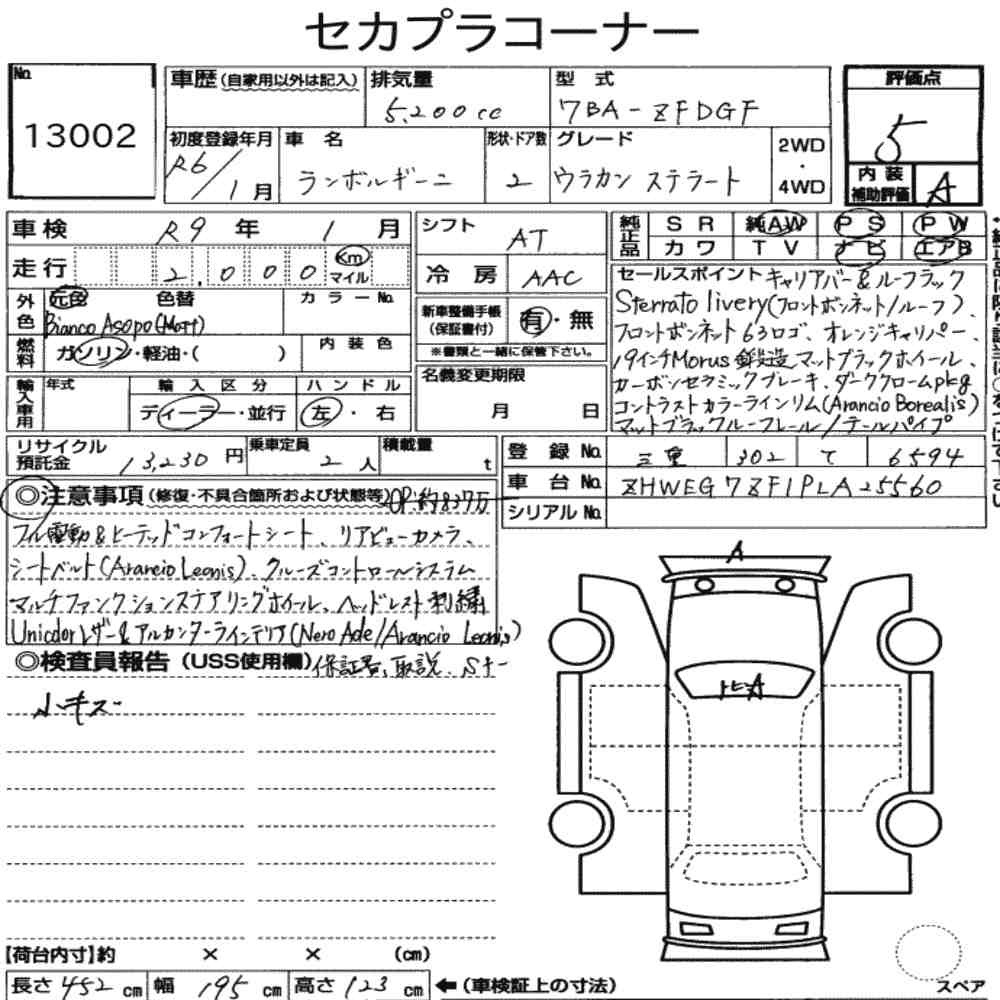 セカプラコーナー
No.
13002
車歴(自家用以外は記入)
排気量
5,200cc
型式
7BA-ZFDGF
評価点
5
初度登録年月
R6/1月
車名
ランボルギーニ
形状・ドア数
2
グレード
ウラカン ステラート
2WD
・
4WD
内装
補助評価
A
車検 R9年 1月
シフト
AT
純正品
SR 純AW PS PW
カワ TV ナビ エアB
走行 2,000 Km マイル
冷房 AAC
外色
元色 色替
カラーNo.
Bianco Asopo(Matt)
新車整備手帳
(保証書付)
有・無
※書類と一緒に保管下さい。
燃料
ガソリン・軽油・( )
内装色
輸入車用
年式
輸入区分
ディーラー・並行
ハンドル
左・右
名義変更期限
月 日
セールスポイント キャリアバー&ルーフラック
Sterrato livery(フロントボンネット/ルーフ)、
フロントボンネット63ロゴ、オレンジキャリパー、
19インチMorus 鍛造マットブラックホイール、
カーボンセラミックブレーキ、ダーククロームpkg
コントラストカラーラインリム(Arancio Borealis)
マットブラックルーフレール/テールパイプ
リサイクル
預託金
13,230円
乗車定員
2人
積載量
t
登録No. 三重 302 て 6594
車台No. ZHWEG7ZF1PLA25560
シリアルNo.
◎注意事項(修復・不具合箇所および状態等)OP:約837万
フル電動&ヒーテッドコンフォートシート、リアビューカメラ、
シートベルト(Arancio Leonis)、クルーズコントロールシステム
マルチファンクションステアリングホイール、ヘッドレスト刺繍
Unicolorレザー&アルカンターラインテリア(Nero Ade/Arancio Leonis)
◎検査員報告(USS使用欄)保証書、取説、Sキー
小キズ
A
トビA
【荷台内寸】約 × × (cm)
長さ452cm 幅195cm 高さ123cm ←(車検証上の寸法)
スペア